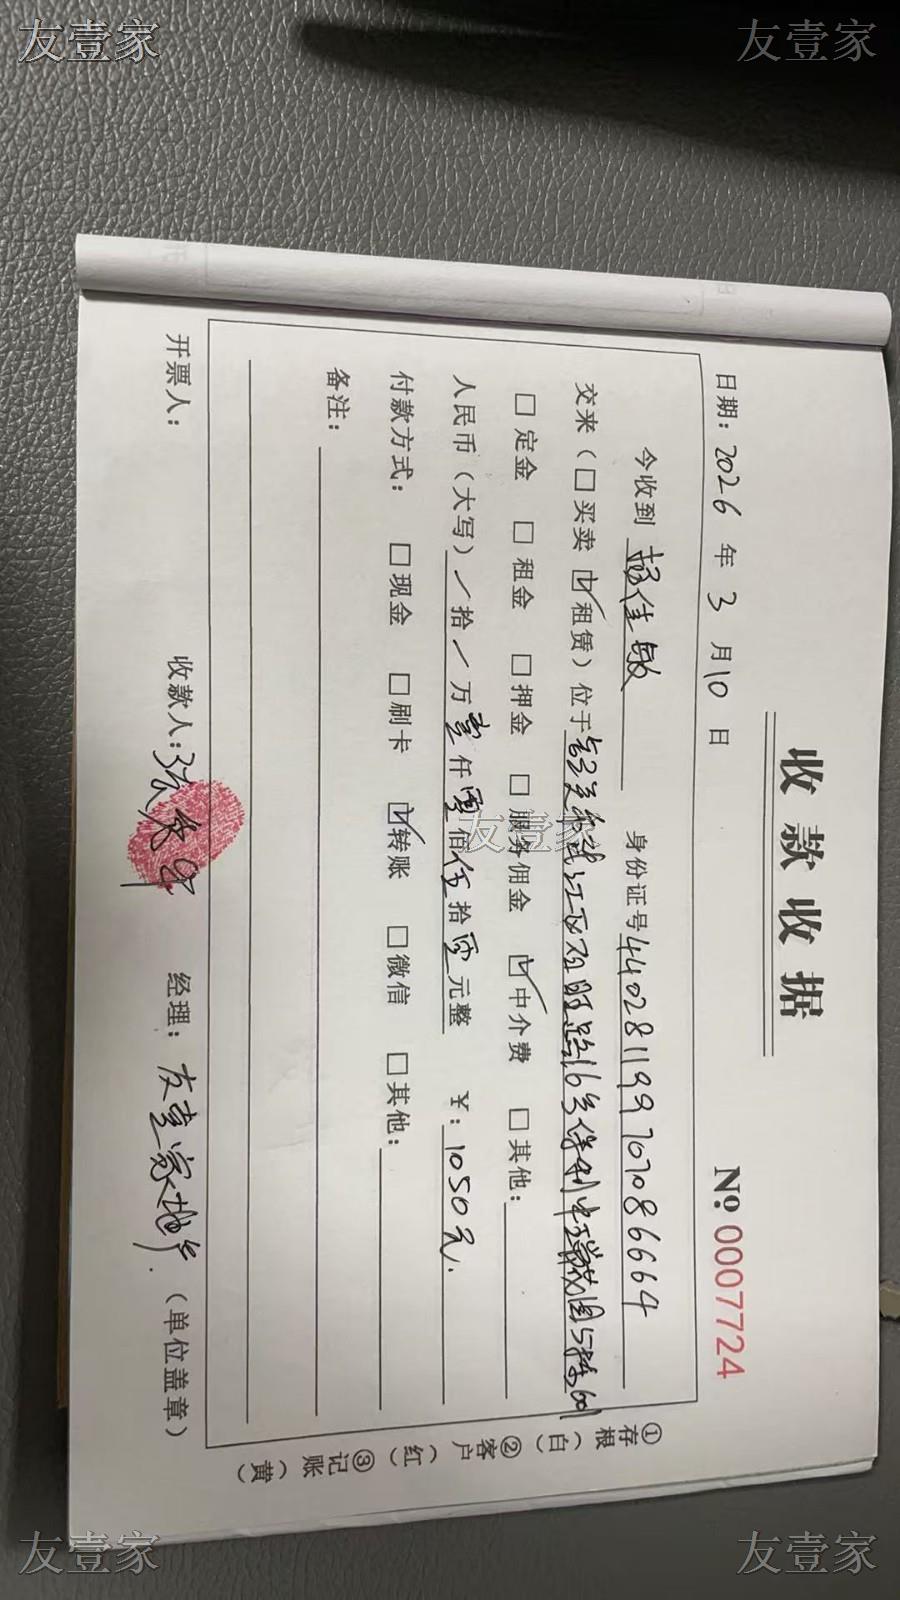 友壹家
友壹家
收款收据
日期：2026年3月10日
№ 0007724
今收到 身份证号 440281199707086664
交来（□买卖 ☑租赁）位于 16号保利中 花园5栋601
□定金 □租金 □押金 □服务佣金 ☑中介费 □其他：
人民币（大写）/拾/万壹仟零佰伍拾零元整 ￥：1050元.
付款方式：□现金 □刷卡 ☑转账 □微信 □其他：
备注：
开票人： 收款人： 经理：友壹家地产.（单位盖章）
①存根（白）②客户（红）③记账（黄）
友壹家
友壹家
友壹家